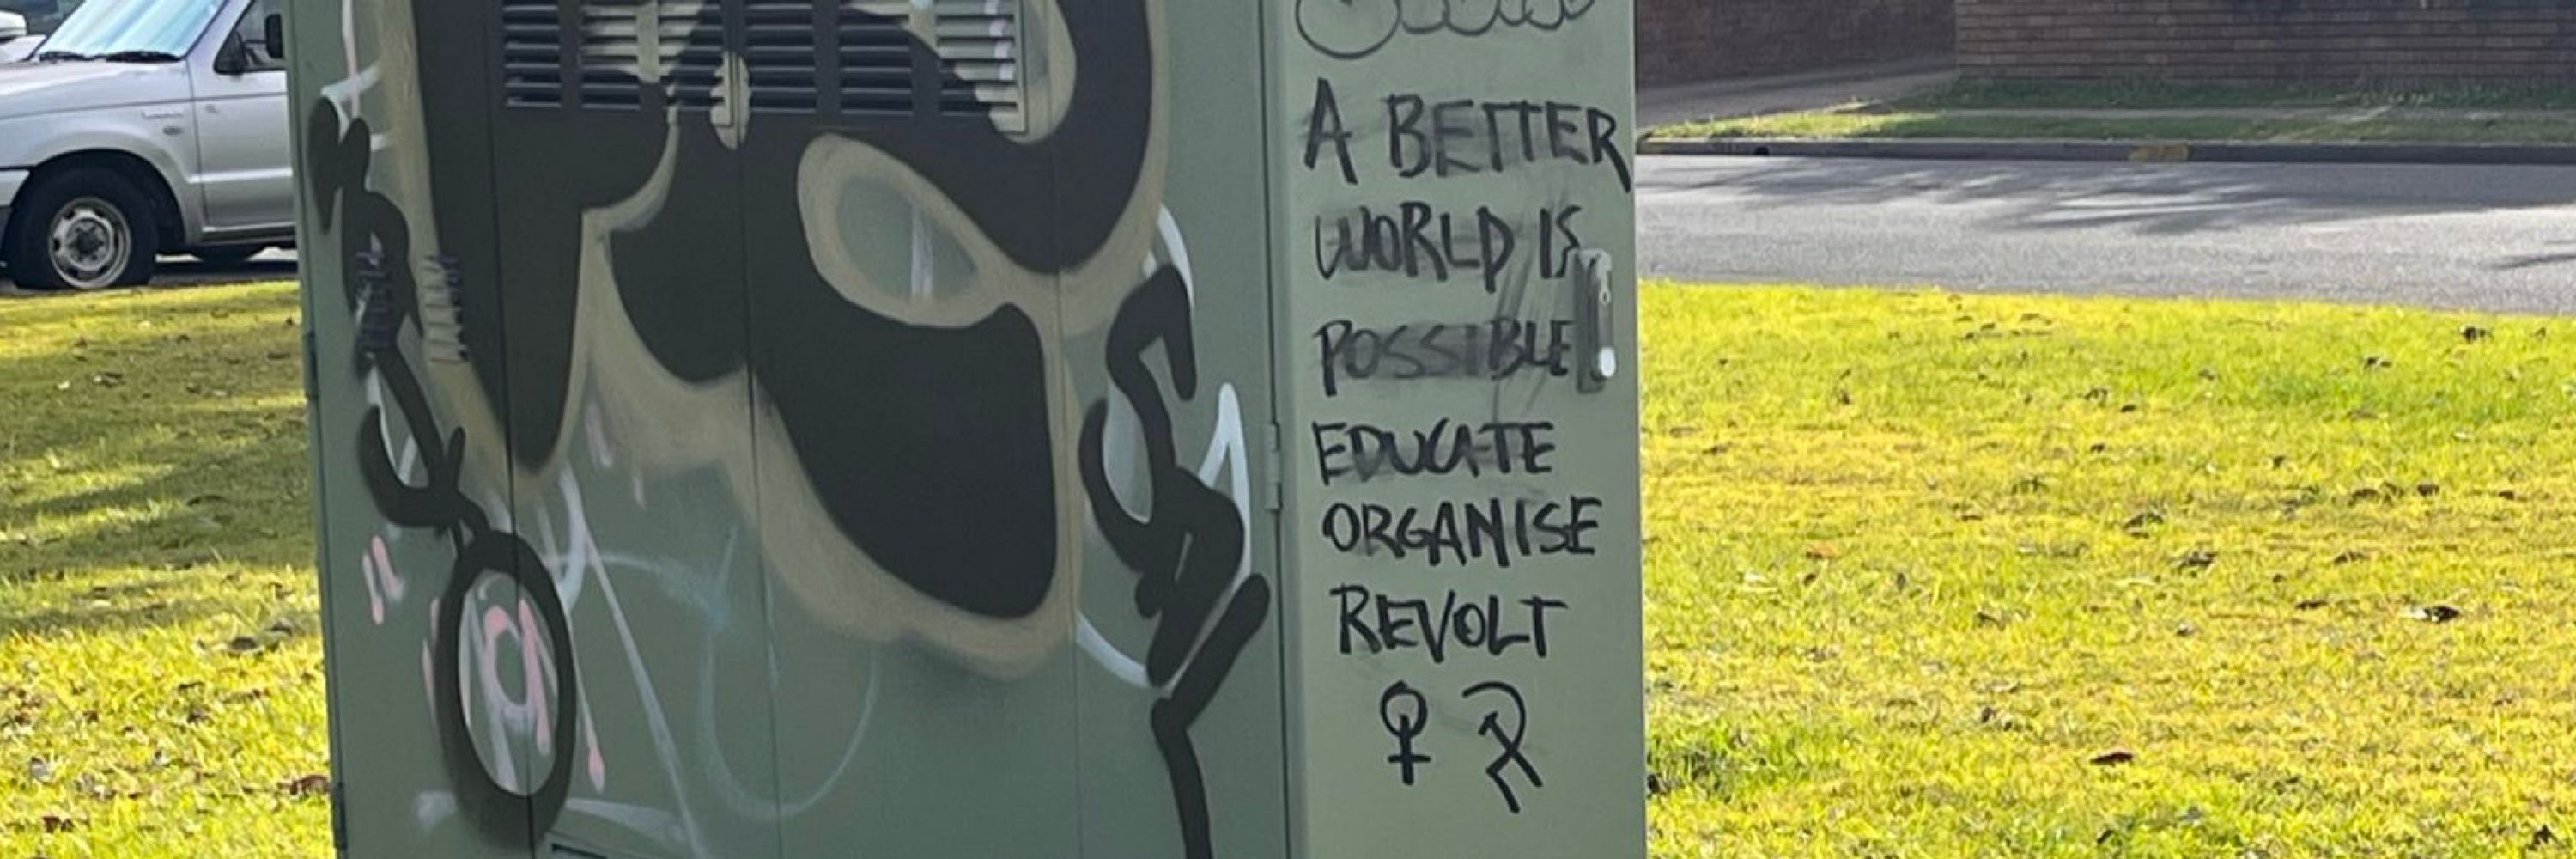 A BETTER
WORLD IS
POSSIBLE
EDUCATE
ORGANISE
REVOLT